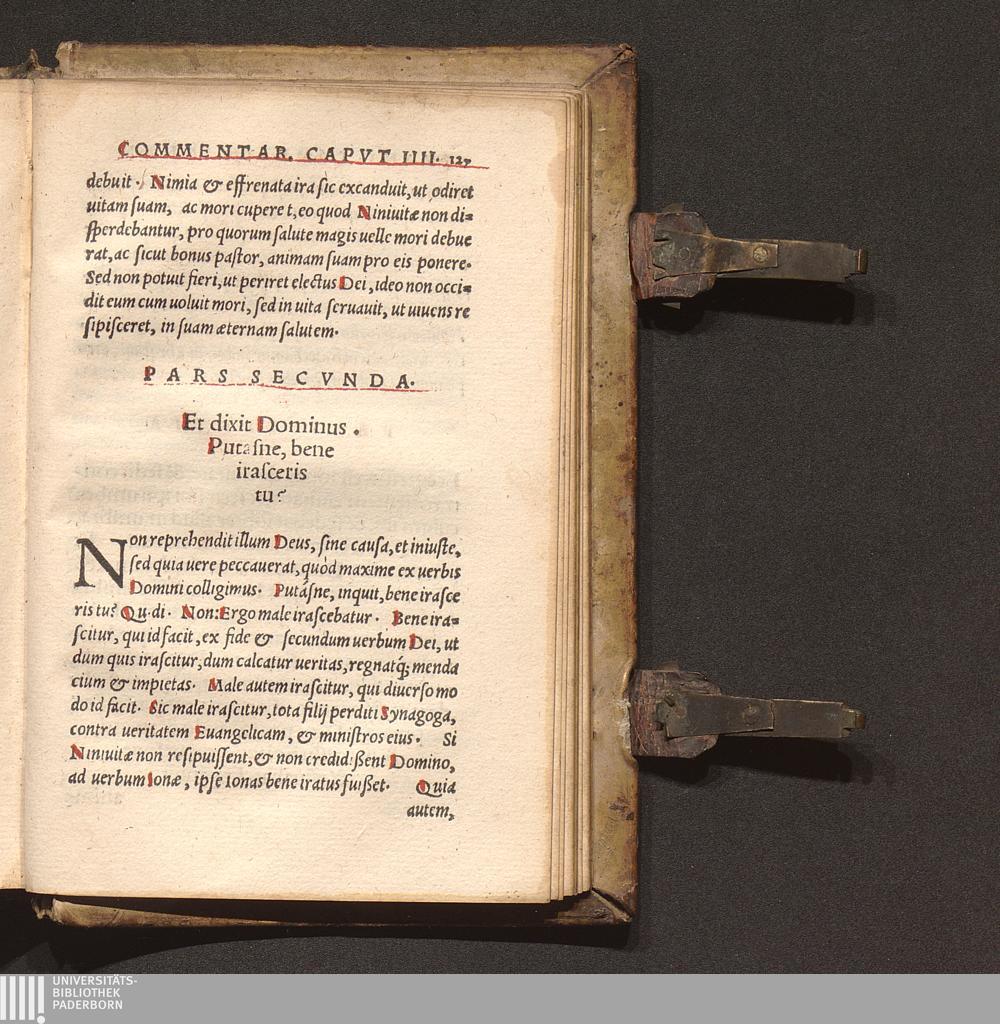 COMMENTAR. CAPVT IIII. 127
debuit. Nimia & effrenata ira sic excanduit, ut odiret
uitam suam, ac mori cuperet, eo quod Niniuitæ non di=
sperdebantur, pro quorum salute magis uelle mori debue
rat, ac sicut bonus pastor, animam suam pro eis ponere.
Sed non potuit fieri, ut periret electus Dei, ideo non occi=
dit eum cum uoluit mori, sed in uita seruauit, ut uiuens re
sipisceret, in suam æternam salutem.
PARS SECVNDA.
Et dixit Dominus.
Putasne, bene
irasceris
tu?
Non reprehendit illum Deus, sine causa, et iniuste,
sed quia uere peccauerat, quòd maxime ex uerbis
Domini colligimus. Putásne, inquit, bene irasce
ris tu? Qu.di. Non: Ergo male irascebatur. Bene ira=
scitur, qui id facit, ex fide & secundum uerbum Dei, ut
dum quis irascitur, dum calcatur ueritas, regnatq́; menda
cium & impietas. Male autem irascitur, qui diuerso mo
do id facit. Sic male irascitur, tota filij perditi Synagoga,
contra ueritatem Euangelicam, & ministros eius. Si
Niniuitæ non resipuissent, & non credidißent Domino,
ad uerbum Ionæ, ipse Ionas bene iratus fuißet. Quia
autem,
UNIVERSITÄTS-
BIBLIOTHEK
PADERBORN